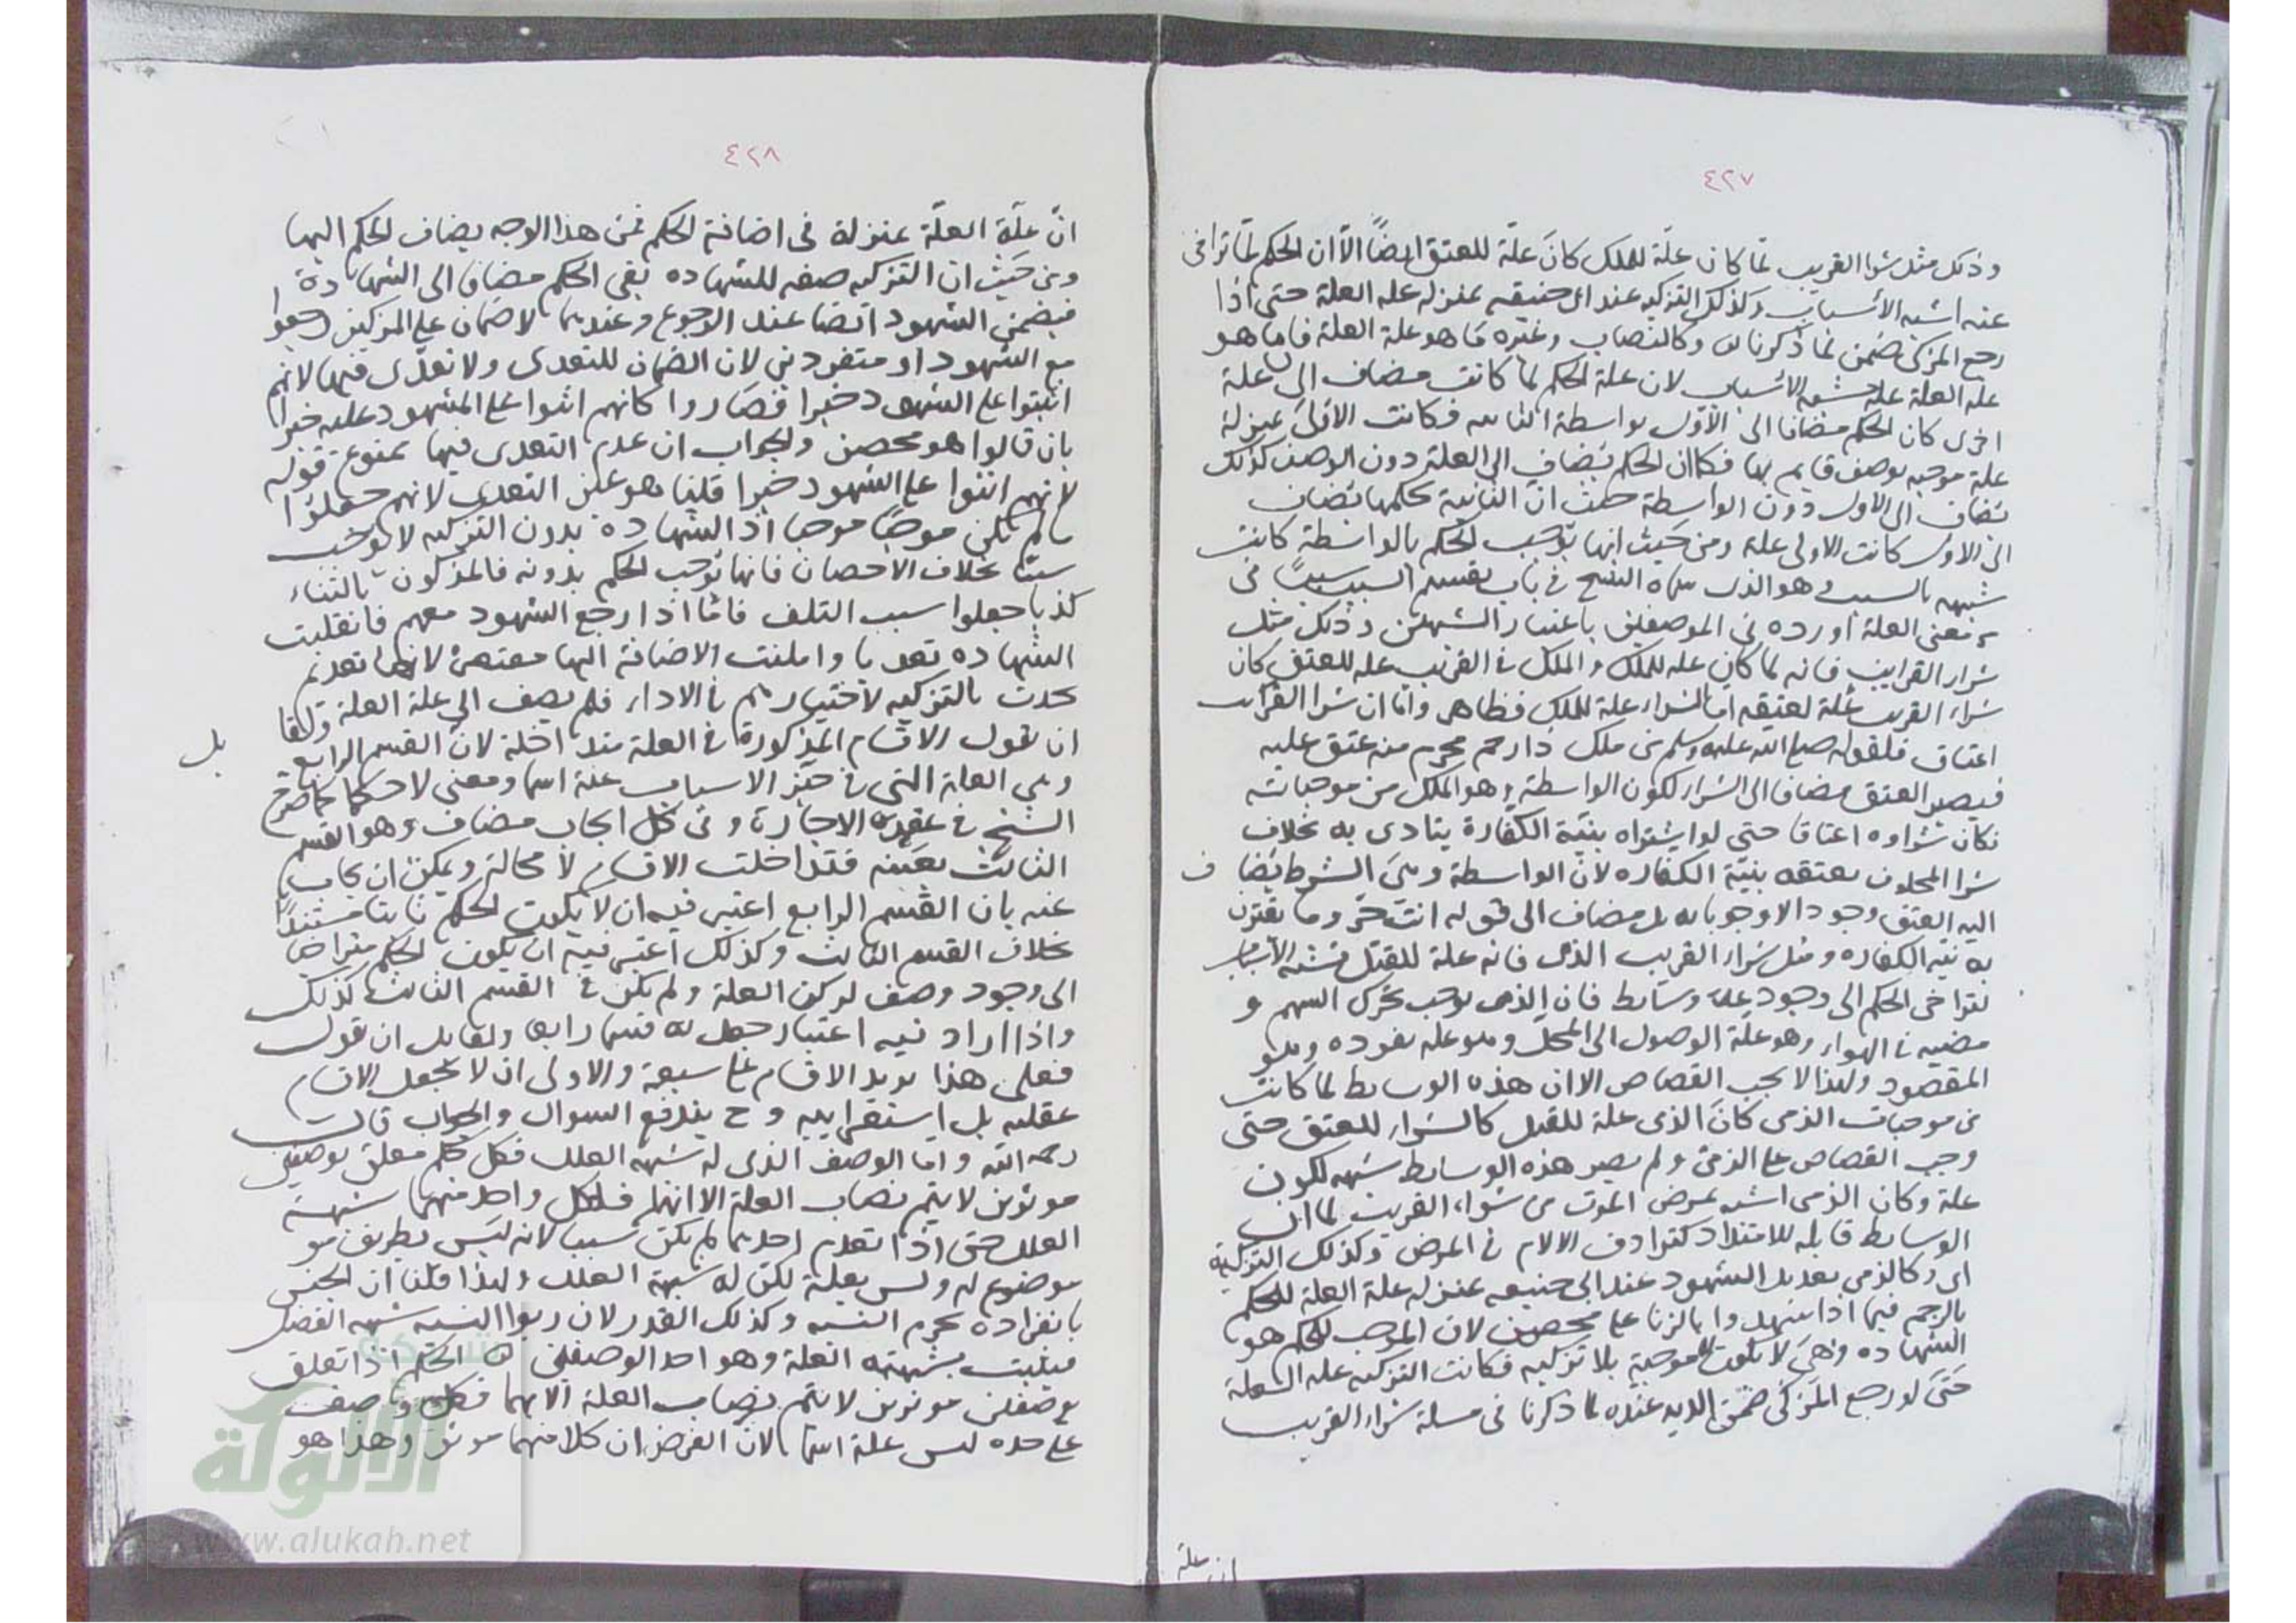 ٤٢٧
وذلك مثل شرا القريب لما كان علة للملك كان علة للعتق ايضاً الا ان الحكم لما تراخى
عنه اشبه الأسباب وكذلك التزكيه عند ابى حنيفه بمنزله عله العلة حتى اذا
رجع المزكى ضمن لما ذكرنا وكالنصاب وغيره مما هو علة العلة فاما هو
عله العلة علة تشبه الاسباب لان علة الحكم لما كانت مضاف الى علة
اخرى كان الحكم مضافا الى الأول بواسطة الثانيه فكانت الاولى بمنزلة
علة موجبه بوصف قايم بها فكما ان الحكم يضاف الى العلة دون الوصف كذلك
يضاف الى الاولى دون الواسطة حيث ان الثانية بحكمها تضاف
الى الاولى كانت الاولى علة ومن حيث انها توجب الحكم بالواسطة كانت
شبيهه بالسبب وهو الذى سماه الشيخ فى باب تقسيم السبب سبباً فى
معنى العلة اورده فى الموضعين باعتبار الشبهتين وذلك مثل
شراء القرايب فانه لما كان عله للملك والملك فى القريب عله للعتق كان
شراء القريب علة لعتقه اما الشراء علة للملك فظاهر واما ان شرا القرايب
اعتاق فلقوله صلى الله عليه وسلم من ملك ذا رحم محرم منه عتق عليه
فيصير العتق مضافا الى الشراء لكون الواسطة وهو الملك من موجباته
فكان شراوه اعتاقا حتى لو اشتراه بنية الكفارة يتادى به بخلاف
شرا المحلوف بعتقه بنية الكفاره لان الواسطة وهى الشرط يضاف
اليه العتق وجودا لا وجوبا به بل مضاف الى قوله انت حر وما يقترن
به نية الكفاره ومثل شراء القريب الذى فانه علة للقتل تشبه الاسباب
لتراخى الحكم الى وجود علة وسايط فان الرمى يوجب تحرك السهم و
مضيه فى الهواء وهو علة الوصول الى المحل وهو عله نفوذه وهو
المقصود ولهذا لا يجب القصاص الا ان هذه الوسايط لما كانت
من موجبات الرمى كان الذى علة للقتل كالشراء للعتق حتى
وجب القصاص على الرمى ولم يصير هذه الوسايط شبهه لكون
علة وكان الرمى اشبه بمرض الموت من شراء القريب لما ان
الوسايط قابله للامتداد كترادف الالام فى المرض وكذلك التزكية
اى وكالرمى تعديل الشهود عند ابى حنيفه بمنزله علة العلة للحكم
بالرجم فيما اذا شهدوا بالزنا على محصن لان الموجب للحكم هو
الشهاده وهى لا تكون موجبة بلا تزكيه فكانت التزكيه عله العلة
حتى لو رجع المزكى ضمن الديه عنده لما ذكرنا فى مسلة شراء القريب
ان علة
٤٢٨
انّ علّة العلّة بمنزلة فى اضافة الحكم فمن هذا الوجه يضاف الحكم اليها
ومن حيث ان التزكيه صفه للشهاده بقى الحكم مضافا الى الشهادة
فيضمن الشهود ايضا عند الرجوع وعندهما لا ضمان على المزكين رجعوا
مع الشهود او منفردين لان الضمان للتعدى ولا تعدّى فيها لانهم
اثنوا على الشهود خيرا فصاروا كانهم اثنوا على المشهود عليه خيرا
بان قالوا هو محصن والجواب ان عدم التعدى فيها ممنوع قوله
لانهم اثنوا على الشهود خيرا قلنا هو عين التعدى لانهم جعلوا
ما لم يكن موجبا موجبا اذ الشهاده بدون التزكيه لا توجب
شيئا بخلاف الاحصان فانها توجب الحكم بدونه فالمزكون بالثناء
كذبا جعلوا سبب التلف فاما اذا رجع الشهود معهم فانقلبت
الشهاده تعديا وامكنت الاضافة اليها مقتصرة لانها تعديهم
بحدث بالتزكيه لاختيارهم فى الاداء فلم يضف الى علة العلة ولقا بل
ان نقول الاقسام المذكورة فى العلة متداخلة لان القسم الرابع
وهى العلة التى فى حيز الاسباب علة اسما ومعنى لا حكما كما صرح
الشيخ فى عقده الاجارة وفى كل ايجاب مضاف وهو القسم
الثالث بعينه فتداخلت الاقسام لا محالة ويمكن ان يجاب
عنه بان القسم الرابع اعتبر فيه ان لا يكون الحكم ثابتا مستندا
بخلاف القسم الثالث وكذلك اعتبر فيه ان يكون الحكم متراخيا
الى وجود وصف لركن العلة ولم يكن فى القسم الثالث كذلك
واذا اراد فيه اعتبار جعل له قسما رابعا ولقايل ان يقول
فعلى هذا يزيد الاقسام على سبعة والاولى ان لا نجعل الاقسام
عقليه بل استقراييه وح يندفع السوال والجواب قال
رحمه الله واما الوصف الذى له شبهه العلل فكل حكم معلق بوصفين
موثرين لا يتم نصاب العلة الا انهما فلكل واحد منهما شبهة
العلل حتى اذا تقدم احدهما لم يكن سببا لانه ليس بطريق هو
موضوع له وليس بعلة لكن له شبهة العلل ولهذا قلنا ان الجنس
بانفراده يحرم النسيه وكذلك القدر لان ربوا النسيه شبهه الفضل
فيثبت بشبهته العلة وهو احد الوصفين لان الحكم اذا تعلق
بوصفين موثرين لا يتم نصاب العلة الا بهما فكل وصف
على حده ليس علة اسما لان الغرض ان كلا منهما موثر وهذا هو
شبكة
الألوكة
www.alukah.net